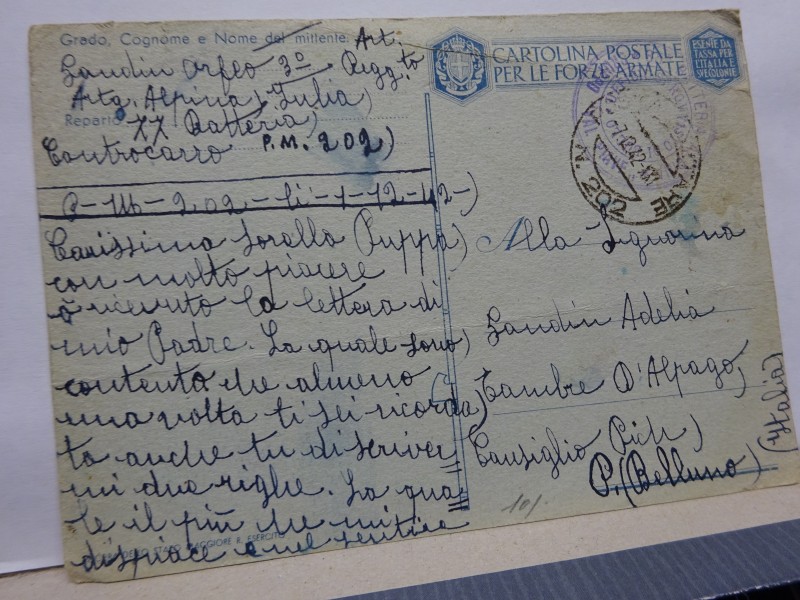 Grado, Cognome e Nome del mittente Art.
Sandin Orfeo 3º Regg.to
Artg. Alpina Julia)
Reparto XX Batteria)
Controcarro P.M. 202)
P-M-202-li-1-12-42-)
Carissima Sorella Puppa)
con molto piacere
ò ricevuto la lettera di
mio Padre. La quale sono
contento che almeno
una volta ti sei ricorda
ta anche tu di scriver
mi due righe. La qua
le il più che mi
dispiace nel sentire
STATO MAGGIORE R. ESERCITO
CARTOLINA POSTALE
PER LE FORZE ARMATE
ESENTE DA
TASSA PER
L'ITALIA E
SUE COLONIE
N. 202
-7.12.42-XXI
Alla Signorina
Sandin Adelia
Tambre D'Alpago,
Cansiglio Pich)
P. (Belluno) (Italia)
10/-